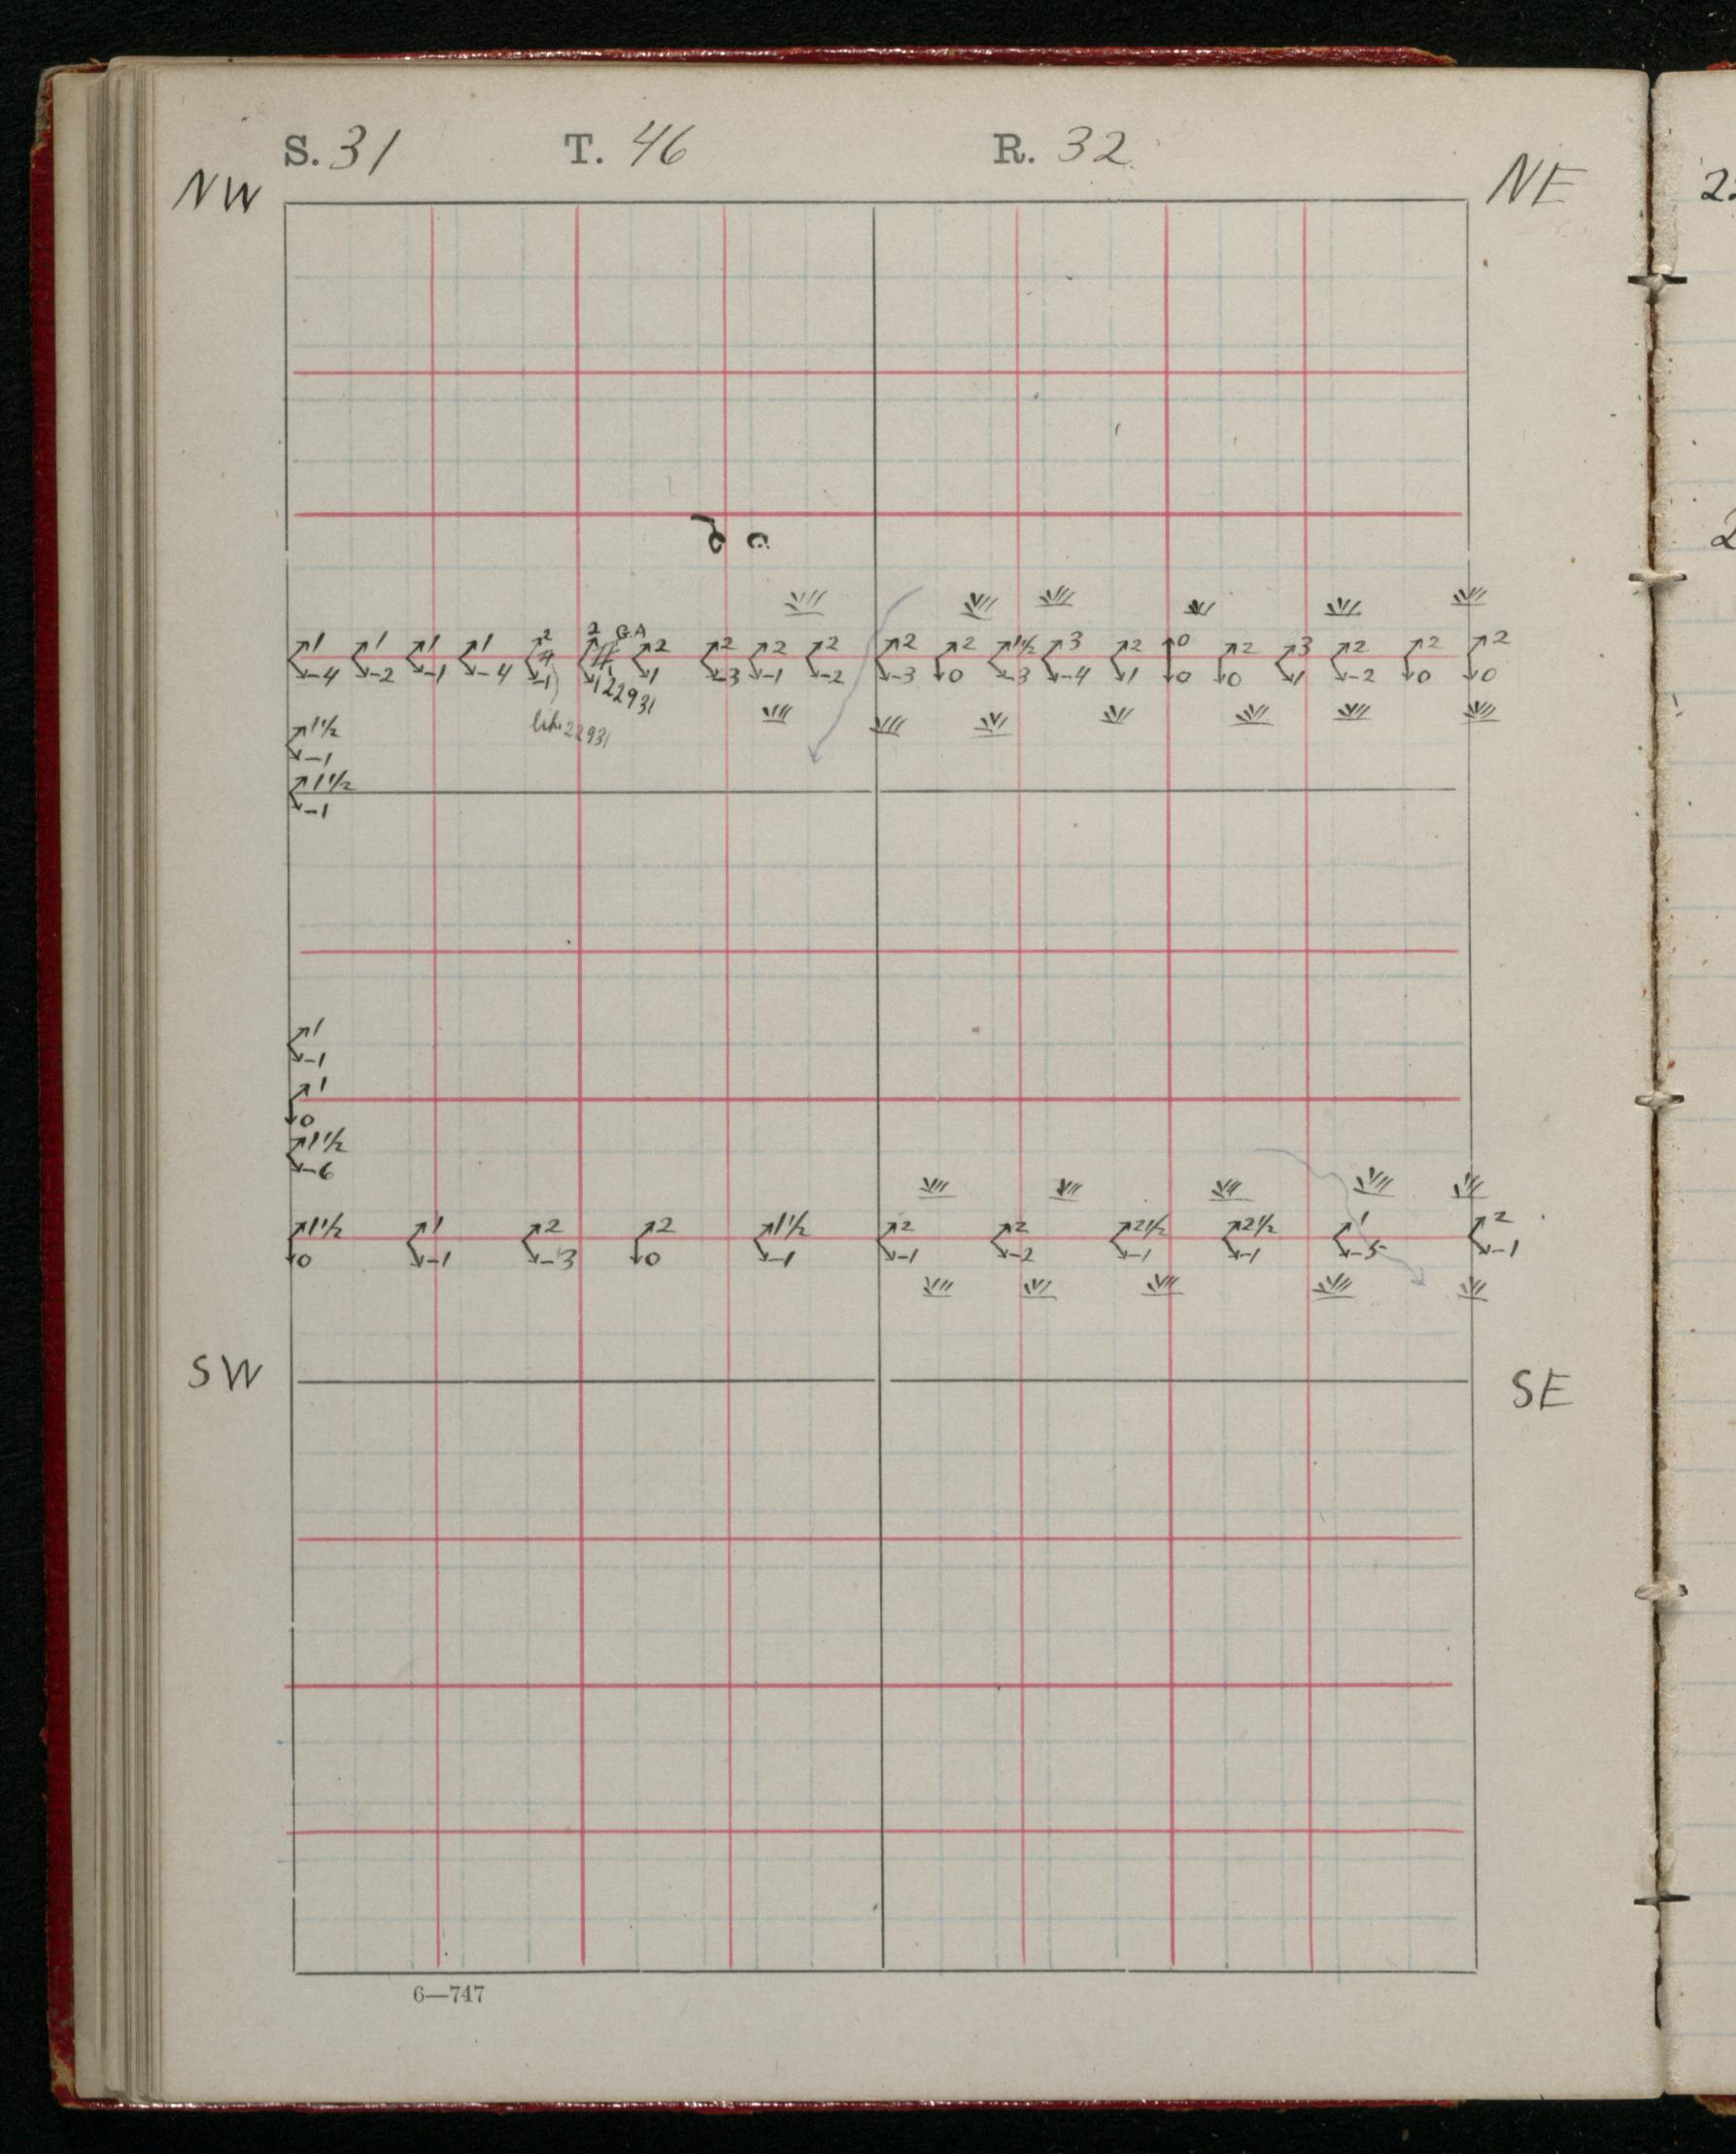 S. 31 T. 46 R. 32
NW NE
2 2 G.A
1 1 1 1 2 2 2 2 2 2 1½ 3 2 0 2 3 2 2 2
-4 -2 -1 -4 -1 -1 1 -3 -1 -2 -3 0 -3 -4 1 0 0 1 -2 0 0
22931
22931
1½
-1
1½
-1
1
-1
1
0
1½
-6
1½ 1 2 2 1½ 2 2 2½ 2½ 1 2
0 -1 -3 0 -1 -1 -2 -1 -1 -5 -1
SW SE
6—747